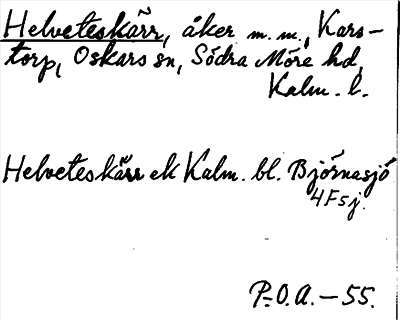 Helveteskärr, åker m.m., Kars-
torp, Oskars sn, Södra Möre hd,
Kalm. l.
Helveteskärr ek Kalm. bl. Björnasjö
4F5j.
P.O.A. – 55.